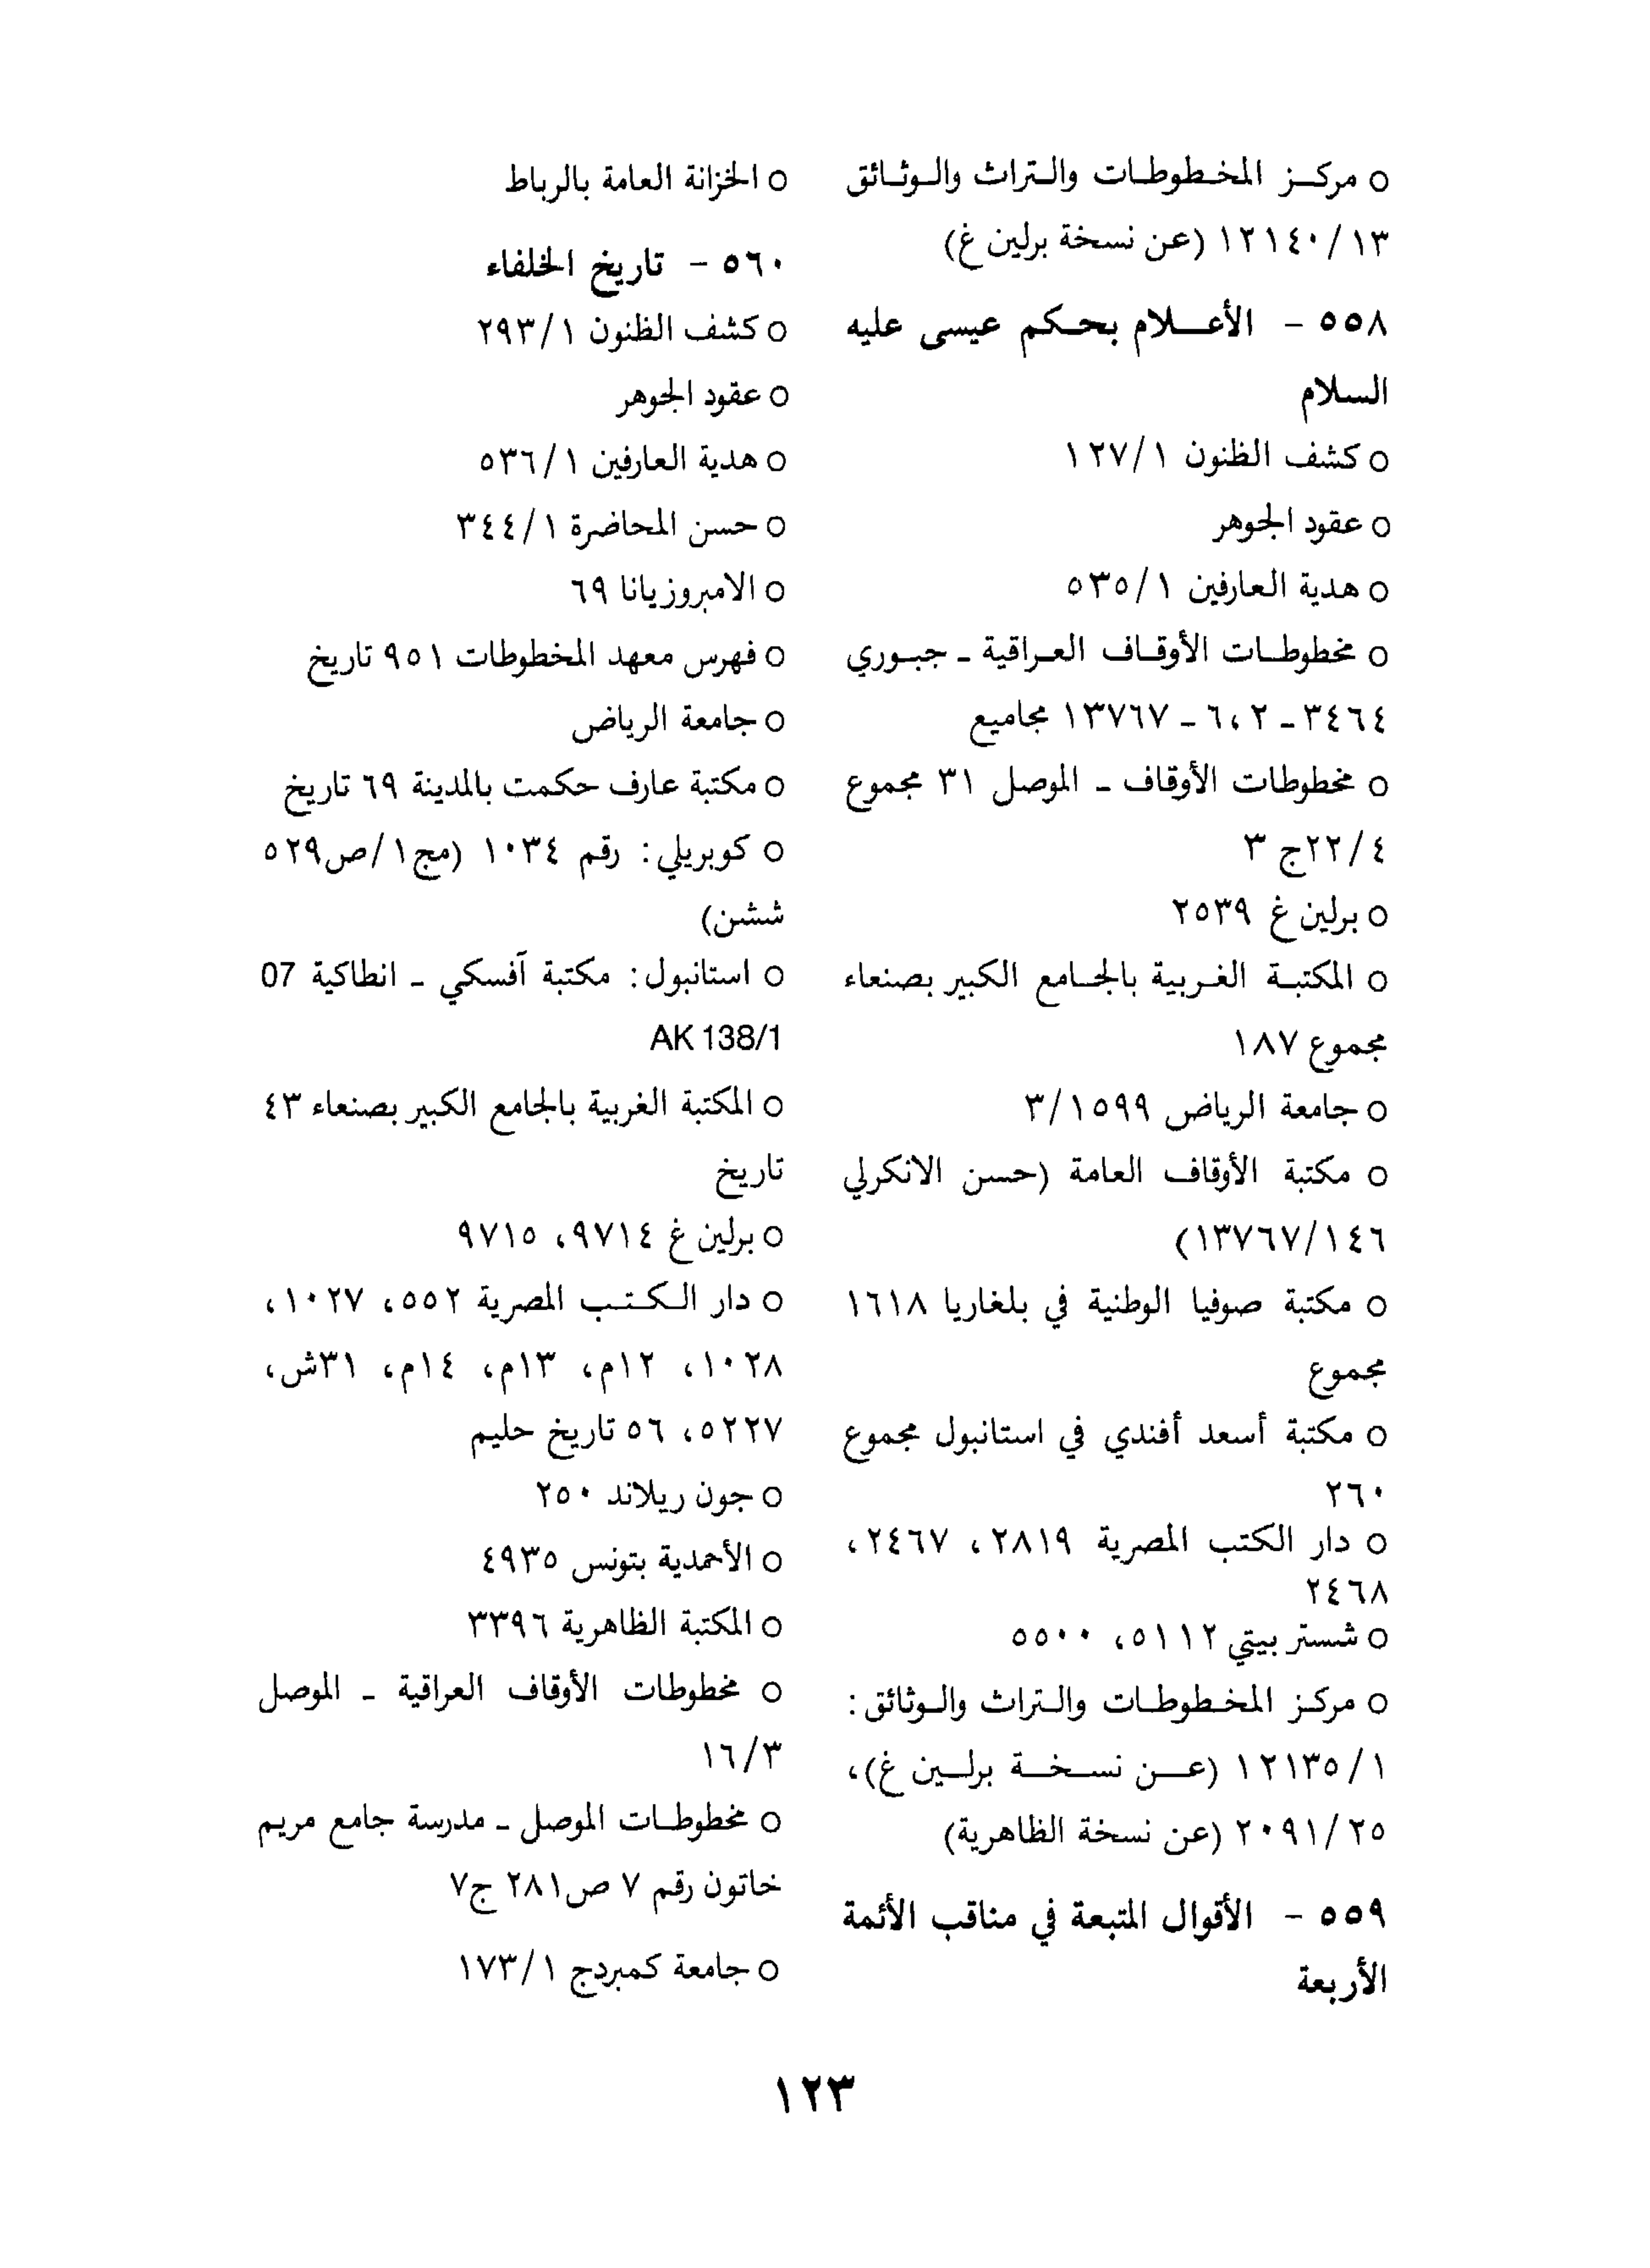 ○ مركز المخطوطات والتراث والوثائق
١٢١٤٠/١٣ (عن نسخة برلين غ)
٥٥٨ - الأعلام بحكم عيسى عليه
السلام
○ كشف الظنون ١٢٧/١
○ عقود الجوهر
○ هدية العارفين ٥٣٥/١
○ مخطوطات الأوقاف العراقية ـ جبوري
٣٤٦٤ ـ ٦،٢ ـ ١٣٧٦٧ مجاميع
○ مخطوطات الأوقاف ـ الموصل ٣١ مجموع
٢٢/٤ج ٣
○ برلين غ ٢٥٣٩
○ المكتبة الغربية بالجامع الكبير بصنعاء
مجموع ١٨٧
○ جامعة الرياض ٣/١٥٩٩
○ مكتبة الأوقاف العامة (حسن الانكرلي
١٣٧٦٧/١٤٦)
○ مكتبة صوفيا الوطنية في بلغاريا ١٦١٨
مجموع
○ مكتبة أسعد أفندي في استانبول مجموع
٢٦٠
○ دار الكتب المصرية ٢٨١٩، ٢٤٦٧،
٢٤٦٨
○ شستر بيتي ٥١١٢، ٥٥٠٠
○ مركز المخطوطات والتراث والوثائق:
١٢١٣٥/١ (عن نسخة برلين غ)،
٢٠٩١/٢٥ (عن نسخة الظاهرية)
٥٥٩ - الأقوال المتبعة في مناقب الأئمة
الأربعة
○ الخزانة العامة بالرباط
٥٦٠ - تاريخ الخلفاء
○ كشف الظنون ٢٩٣/١
○ عقود الجوهر
○ هدية العارفين ٥٣٦/١
○ حسن المحاضرة ٣٤٤/١
○ الامبروزيانا ٦٩
○ فهرس معهد المخطوطات ٩٥١ تاريخ
○ جامعة الرياض
○ مكتبة عارف حكمت بالمدينة ٦٩ تاريخ
○ كوبريلي: رقم ١٠٣٤ (مج١/ص٥٢٩
ششن)
○ استانبول: مكتبة آفسكي ـ انطاكية 07
AK 138/1
○ المكتبة الغربية بالجامع الكبير بصنعاء ٤٣
تاريخ
○ برلين غ ٩٧١٤، ٩٧١٥
○ دار الكتب المصرية ٥٥٢، ١٠٢٧،
١٠٢٨، ١٢م، ١٣م، ١٤م، ٣١ش،
٥٢٢٧، ٥٦ تاريخ حليم
○ جون ريلاند ٢٥٠
○ الأحمدية بتونس ٤٩٣٥
○ المكتبة الظاهرية ٣٣٩٦
○ مخطوطات الأوقاف العراقية ـ الموصل
١٦/٣
○ مخطوطات الموصل ـ مدرسة جامع مريم
خاتون رقم ٧ ص٢٨١ ج٧
○ جامعة كمبردج ١٧٣/١
١٢٣